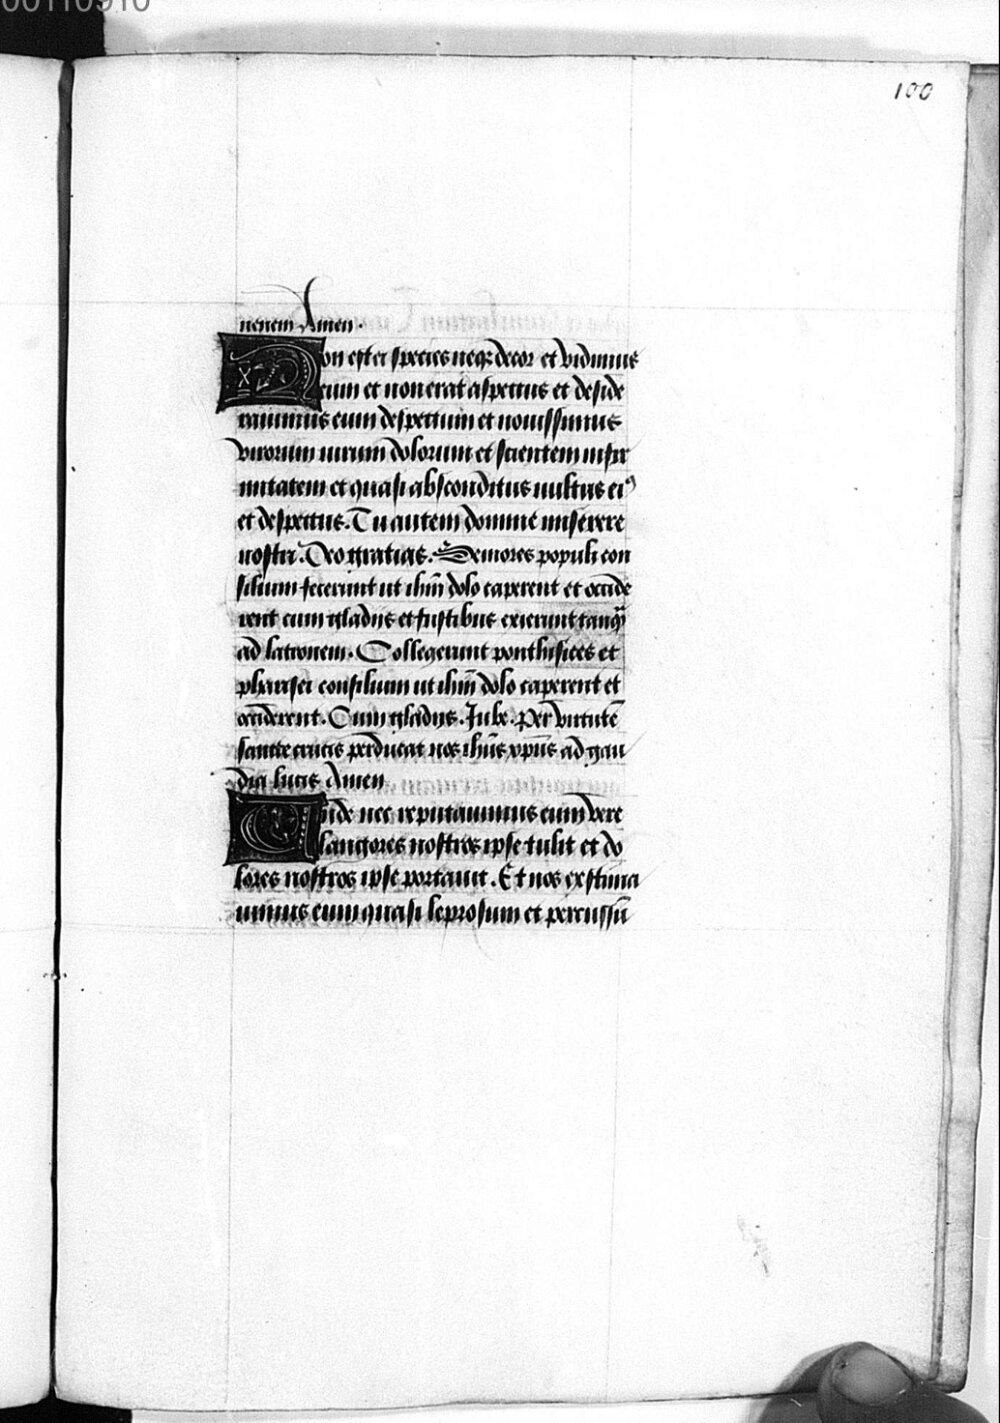 100
nenem Amen.
Non est ei species neqꝫ decor et vidimus
eum et non erat aspectus et deside
rauimus eum despectum et nouissimus
virorum uirum dolorum et scientem infir
mitatem et quasi absconditus uultus eiꝰ
et despectus. Tu autem domine miserere
nostri. Deo gratias. Seniores populi con
silium fecerunt ut ihm̄ dolo caperent et occide
rent cum gladiis et fustibus exierunt tanq̄
ad latronem. Collegerunt ponthifices et
pharisei consilium ut ihm̄ dolo caperent et
occiderent. Cum gladiis. Jube. Per virtutē
sancte crucis perducat nos ihūs xpūs ad gau
dia lucis Amen
Unde nec reputauimus eum vere
langores nostros ipse tulit et do
lores nostros ipse portauit. Et nos exstima
uimus eum quasi leprosum et percussū